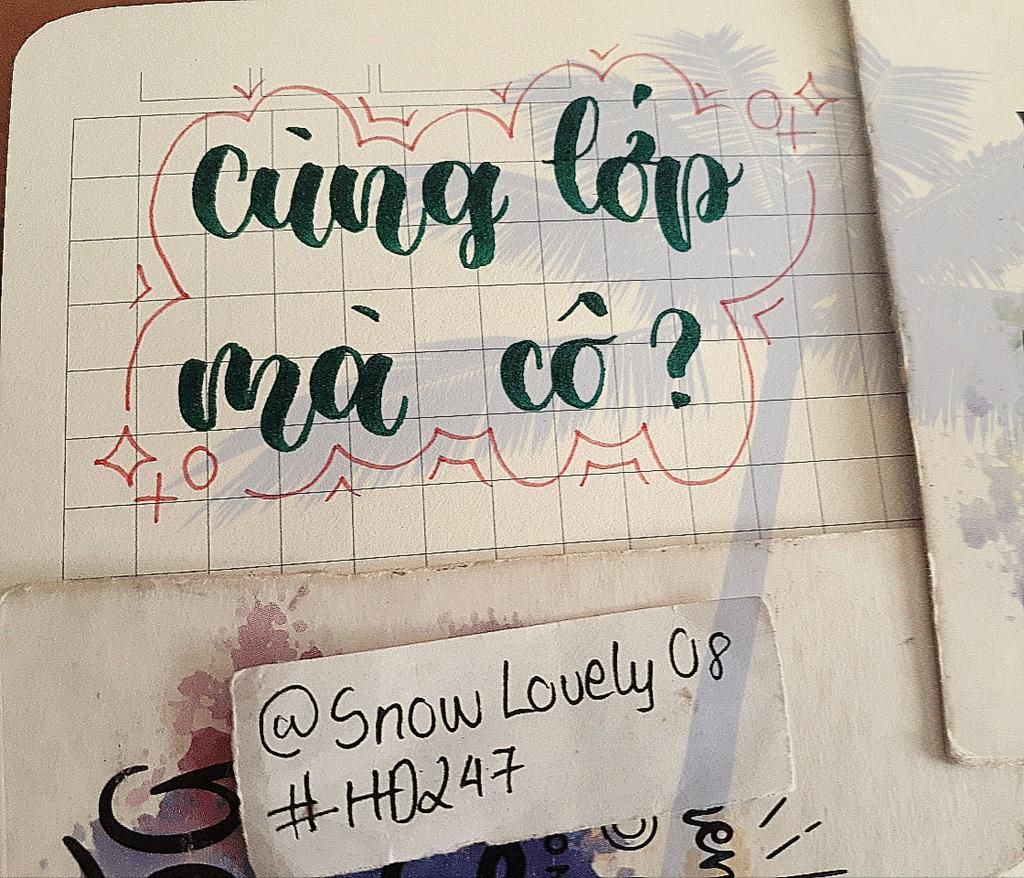 cùng lớp
mà cô?
@Snow Lovely 08
#HD247
ver